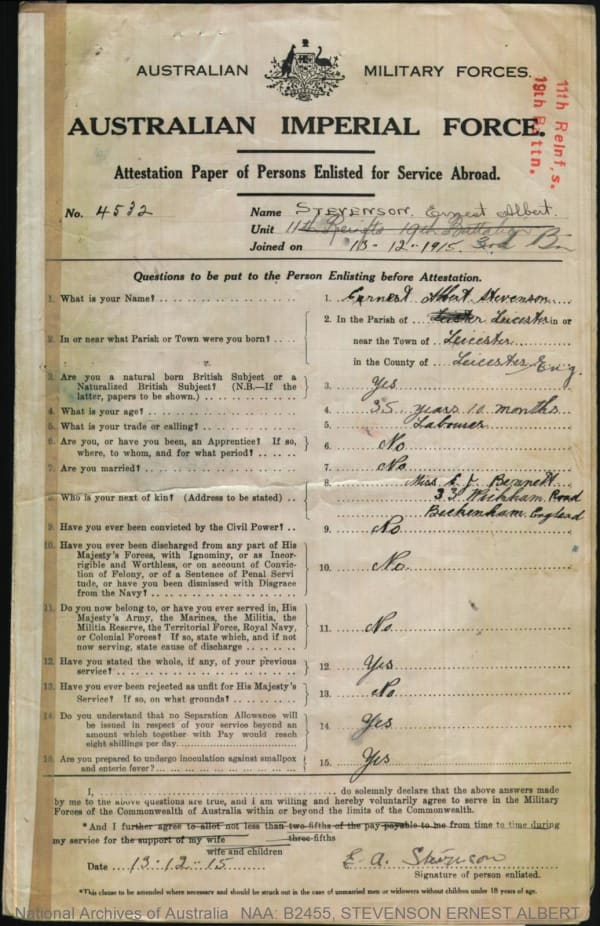 AUSTRALIAN MILITARY FORCES.
AUSTRALIAN IMPERIAL FORCE.
11th Reinf,s.
19th Battn.
Attestation Paper of Persons Enlisted for Service Abroad.
No. 4532
Name STEVENSON. Ernest Albert.
Unit 11th Reinfts 19th Battalion
Joined on 13-12-1915. 3rd Bn
Questions to be put to the Person Enlisting before Attestation.
1. What is your Name? 1. Ernest Albert Stevenson
2. In or near what Parish or Town were you born? 2. In the Parish of Leicester in or
near the Town of Leicester
in the County of Leicester Eng.
3. Are you a natural born British Subject or a
Naturalized British Subject? (N.B.—If the
latter, papers to be shown.) 3. Yes
4. What is your age? 4. 35 years 10 months
5. What is your trade or calling? 5. Labourer
6. Are you, or have you been, an Apprentice? If so,
where, to whom, and for what period? 6. No
7. Are you married? 7. No
8. Miss E. J. Bennett
Who is your next of kin? (Address to be stated) 33 Wickham Road
Beckenham England
9. Have you ever been convicted by the Civil Power? 9. No
10. Have you ever been discharged from any part of His
Majesty's Forces, with Ignominy, or as Incor-
rigible and Worthless, or on account of Convic-
tion of Felony, or of a Sentence of Penal Servi
tude, or have you been Dismissed with Disgrace
from the Navy? 10. No
11. Do you now belong to, or have you ever served in, His
Majesty's Army, the Marines, the Militia, the
Militia Reserve, the Territorial Force, Royal Navy,
or Colonial Forces? If so, state which, and if not
now serving, state cause of discharge 11. No
12. Have you stated the whole, if any, of your previous
service? 12. Yes
13. Have you ever been rejected as unfit for His Majesty's
Service? If so, on what grounds? 13. No
14. Do you understand that no Separation Allowance will
be issued in respect of your service beyond an
amount which together with Pay would reach
eight shillings per day 14. Yes
15. Are you prepared to undergo inoculation against smallpox
and enteric fever? 15. Yes
I, do solemnly declare that the above answers made
by me to the above questions are true, and I am willing and hereby voluntarily agree to serve in the Military
Forces of the Commonwealth of Australia within or beyond the limits of the Commonwealth.
*And I further agree to allot not less than two-fifths of the pay payable to me from time to time during
my service for the support of my wife three-fifths
wife and children
Date 13-12-15 E. A. Stevenson
Signature of person enlisted.
*This clause to be amended where necessary and should be struck out in the case of unmarried men or widowers without children under 18 years of age.
National Archives of Australia NAA: B2455, STEVENSON ERNEST ALBERT